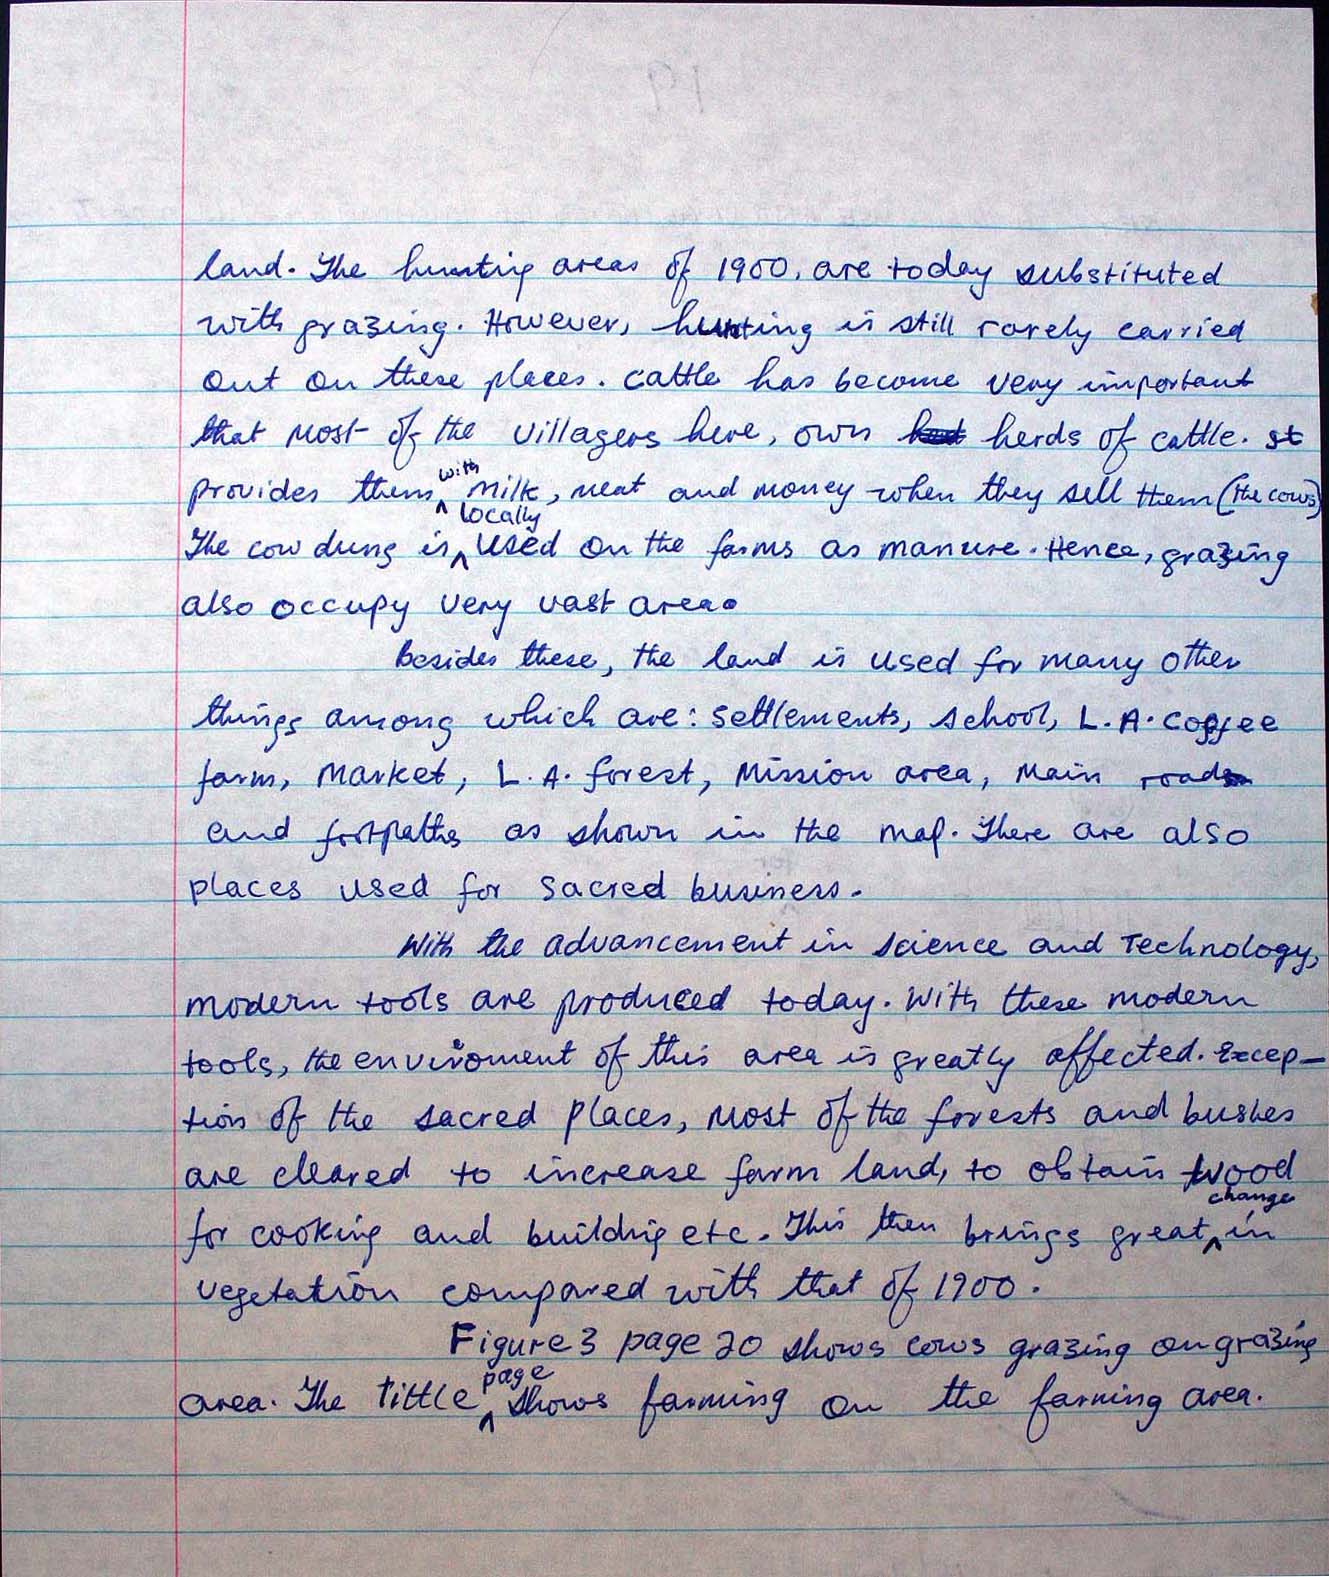 land. The hunting areas of 1900, are today substituted
with grazing. However, hunting is still rarely carried
out on these places. Cattle has become very important
that most of the villagers here, own herds of cattle. It
provides them with milk, meat and money when they sell them (the cows)
The cow dung is locally used on the farms as manure. Hence, grazing
also occupy very vast area.
Besides these, the land is used for many other
things among which are: settlements, school, L.A. coffee
farm, market, L.A. forest, Mission area, main road
and footpaths as shown in the map. There are also
places used for sacred business.
With the advancement in science and Technology,
modern tools are produced today. With these modern
tools, the enviroment of this area is greatly affected. Excep-
tion of the sacred places, most of the forests and bushes
are cleared to increase farm land, to obtain wood
for cooking and building etc. This then brings great change in
vegetation compared with that of 1900.
Figure 3 page 20 shows cows grazing on grazing
area. The tittle page shows farming on the farming area.